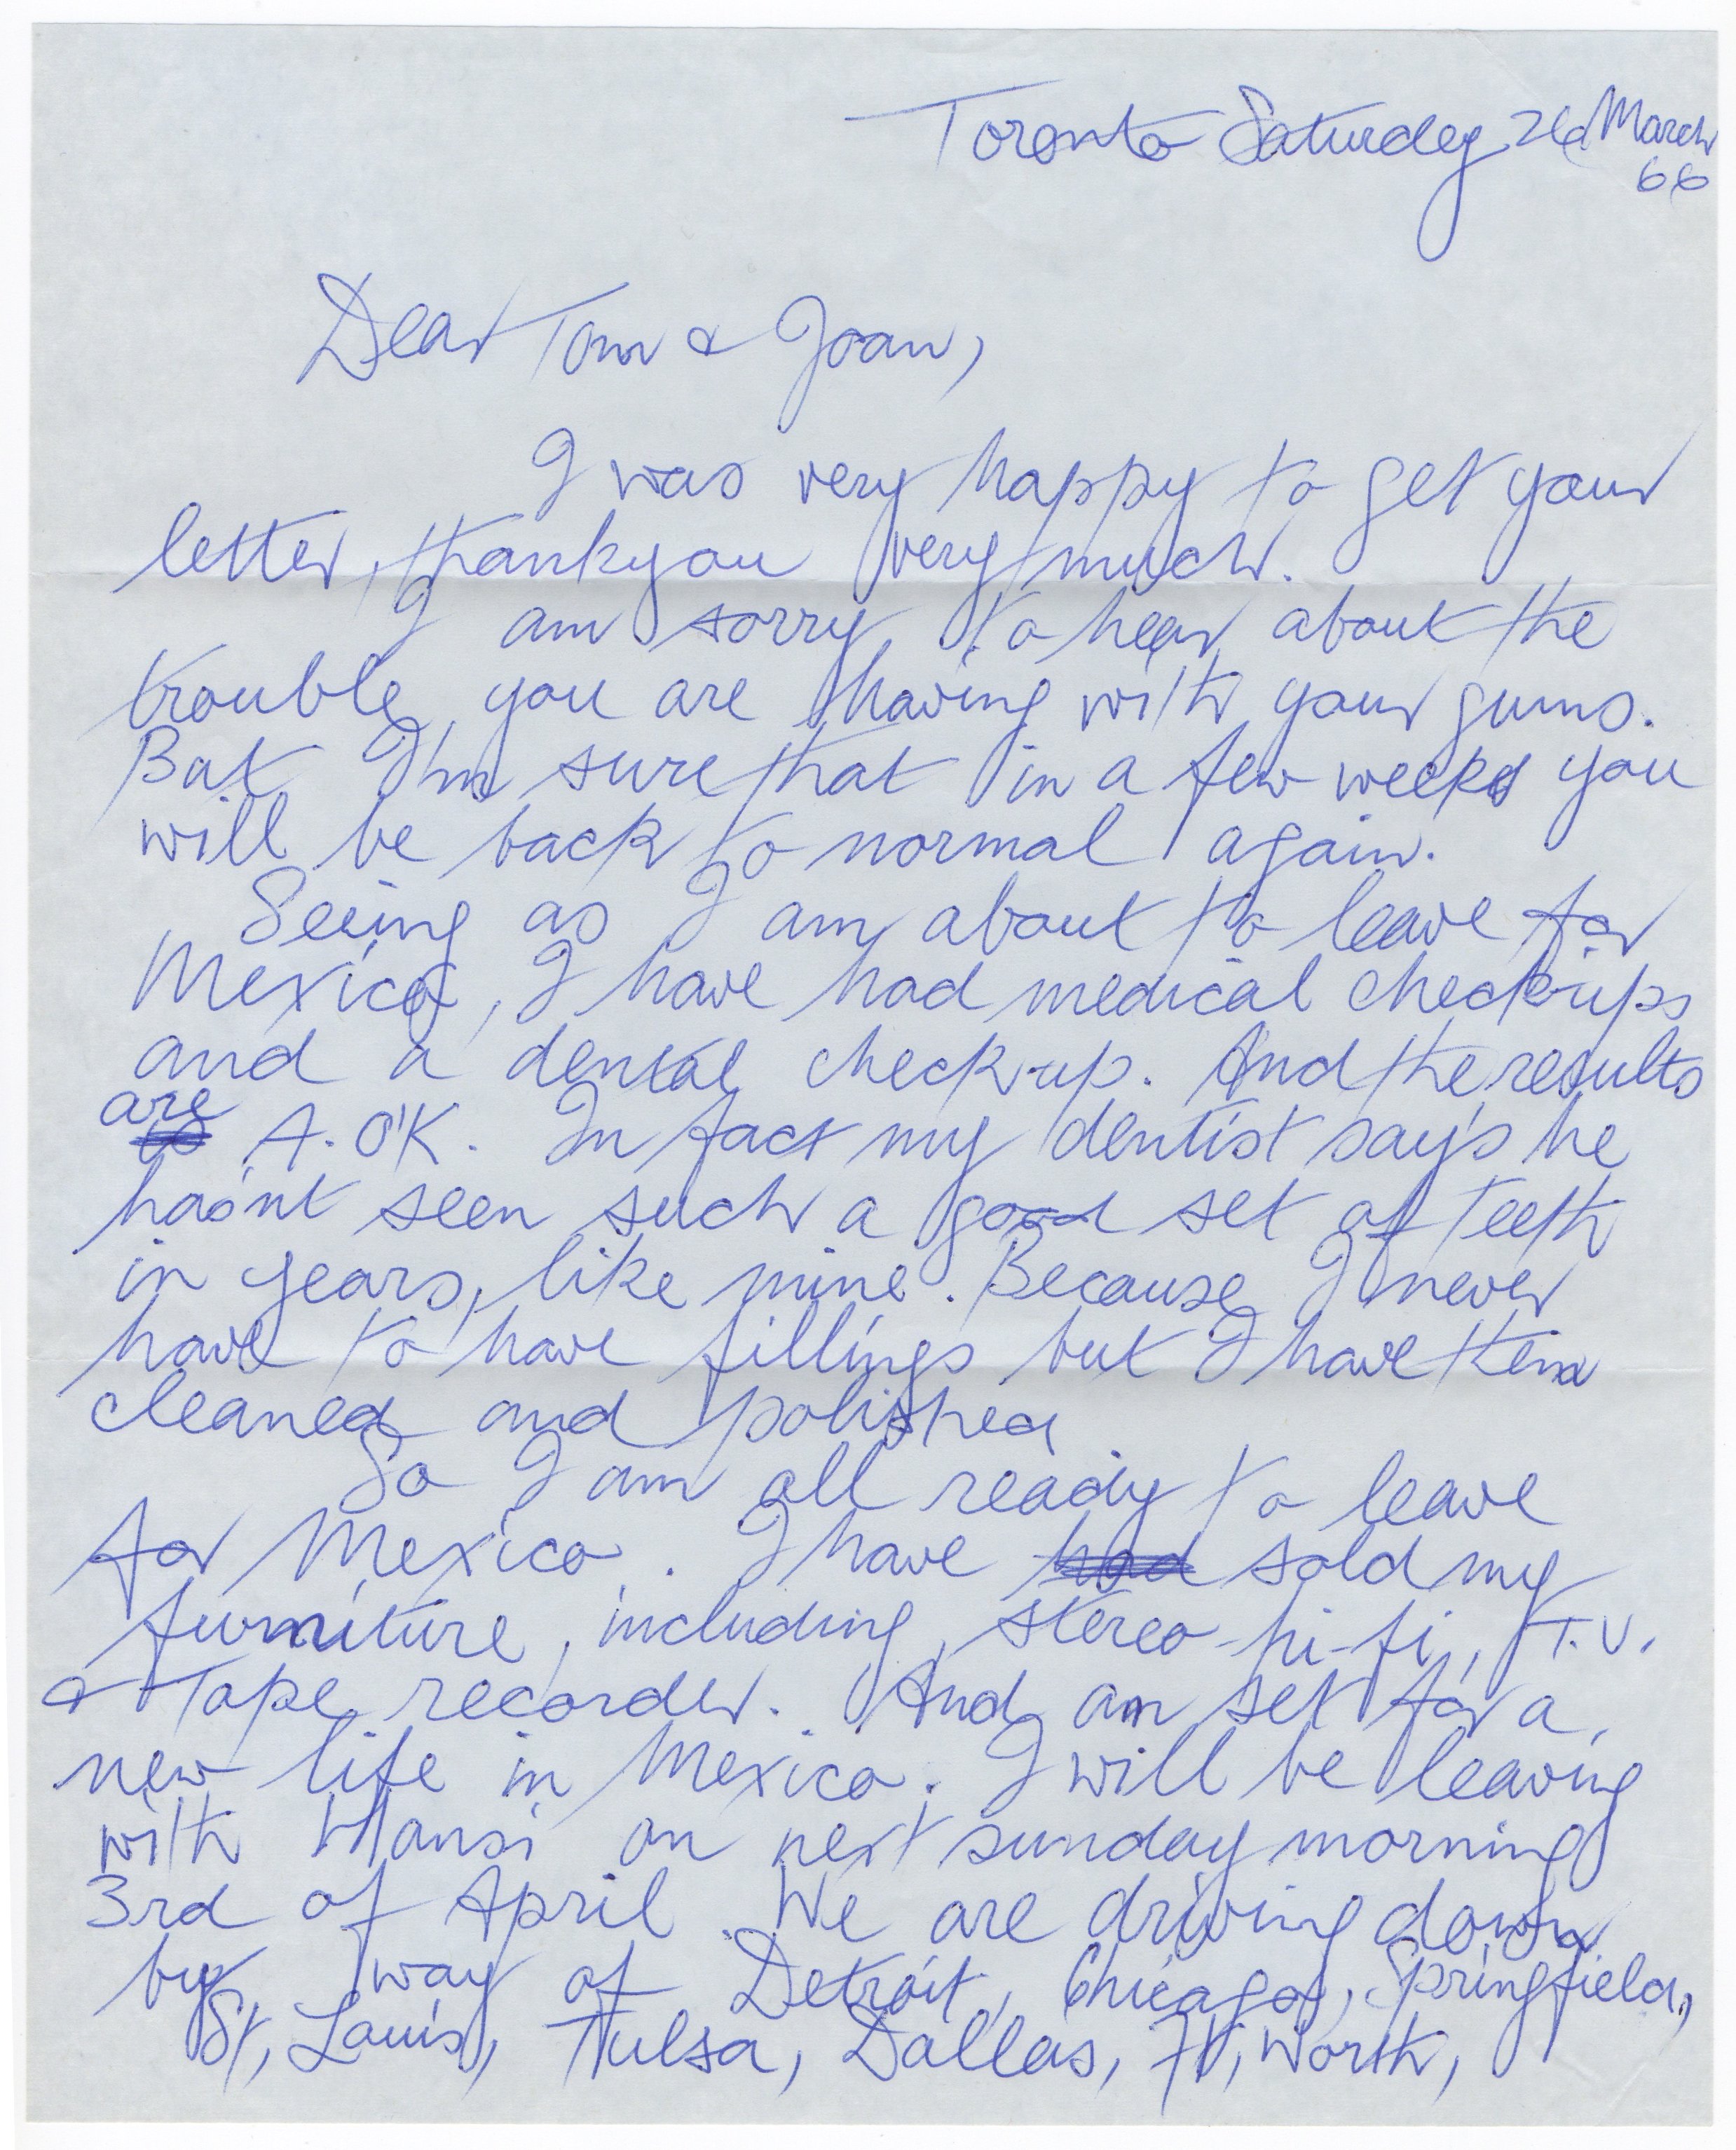 Toronto Saturday 26 March
66
Dear Tom & Joan,
I was very happy to get your
letter, thankyou very much.
I am sorry to hear about the
trouble you are having with your gums.
But I'm sure that in a few weeks you
will be back to normal again.
Seeing as I am about to leave for
Mexico, I have had medical check-ups
and a dental check-up. And the results
are
is A.O'K. In fact my dentist say's he
has'nt seen such a good set of teeth
in years, like mine. Because I never
have to have fillings but I have them
cleaned and polished
So I am all ready to leave
for Mexico. I have had sold my
furniture, including, stereo hi-fi, T.V.
& Tape recorder. And am set for a
new life in Mexico. I will be leaving
with Hansi on next sunday morning
3rd of April. We are driving down
by way of Detroit, Chicago, Springfield,
St, Louis, Tulsa, Dallas, Ft, Worth,